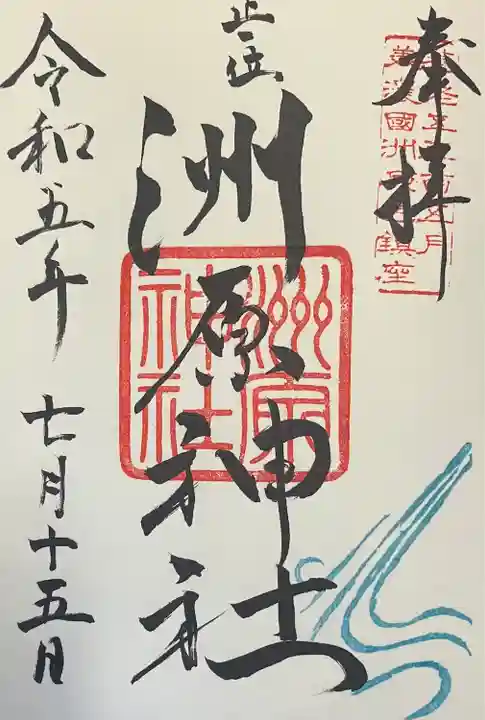 奉拝
美濃國洲鎮座
正一位
洲原神社
洲原
神社
令和五年 七月十五日